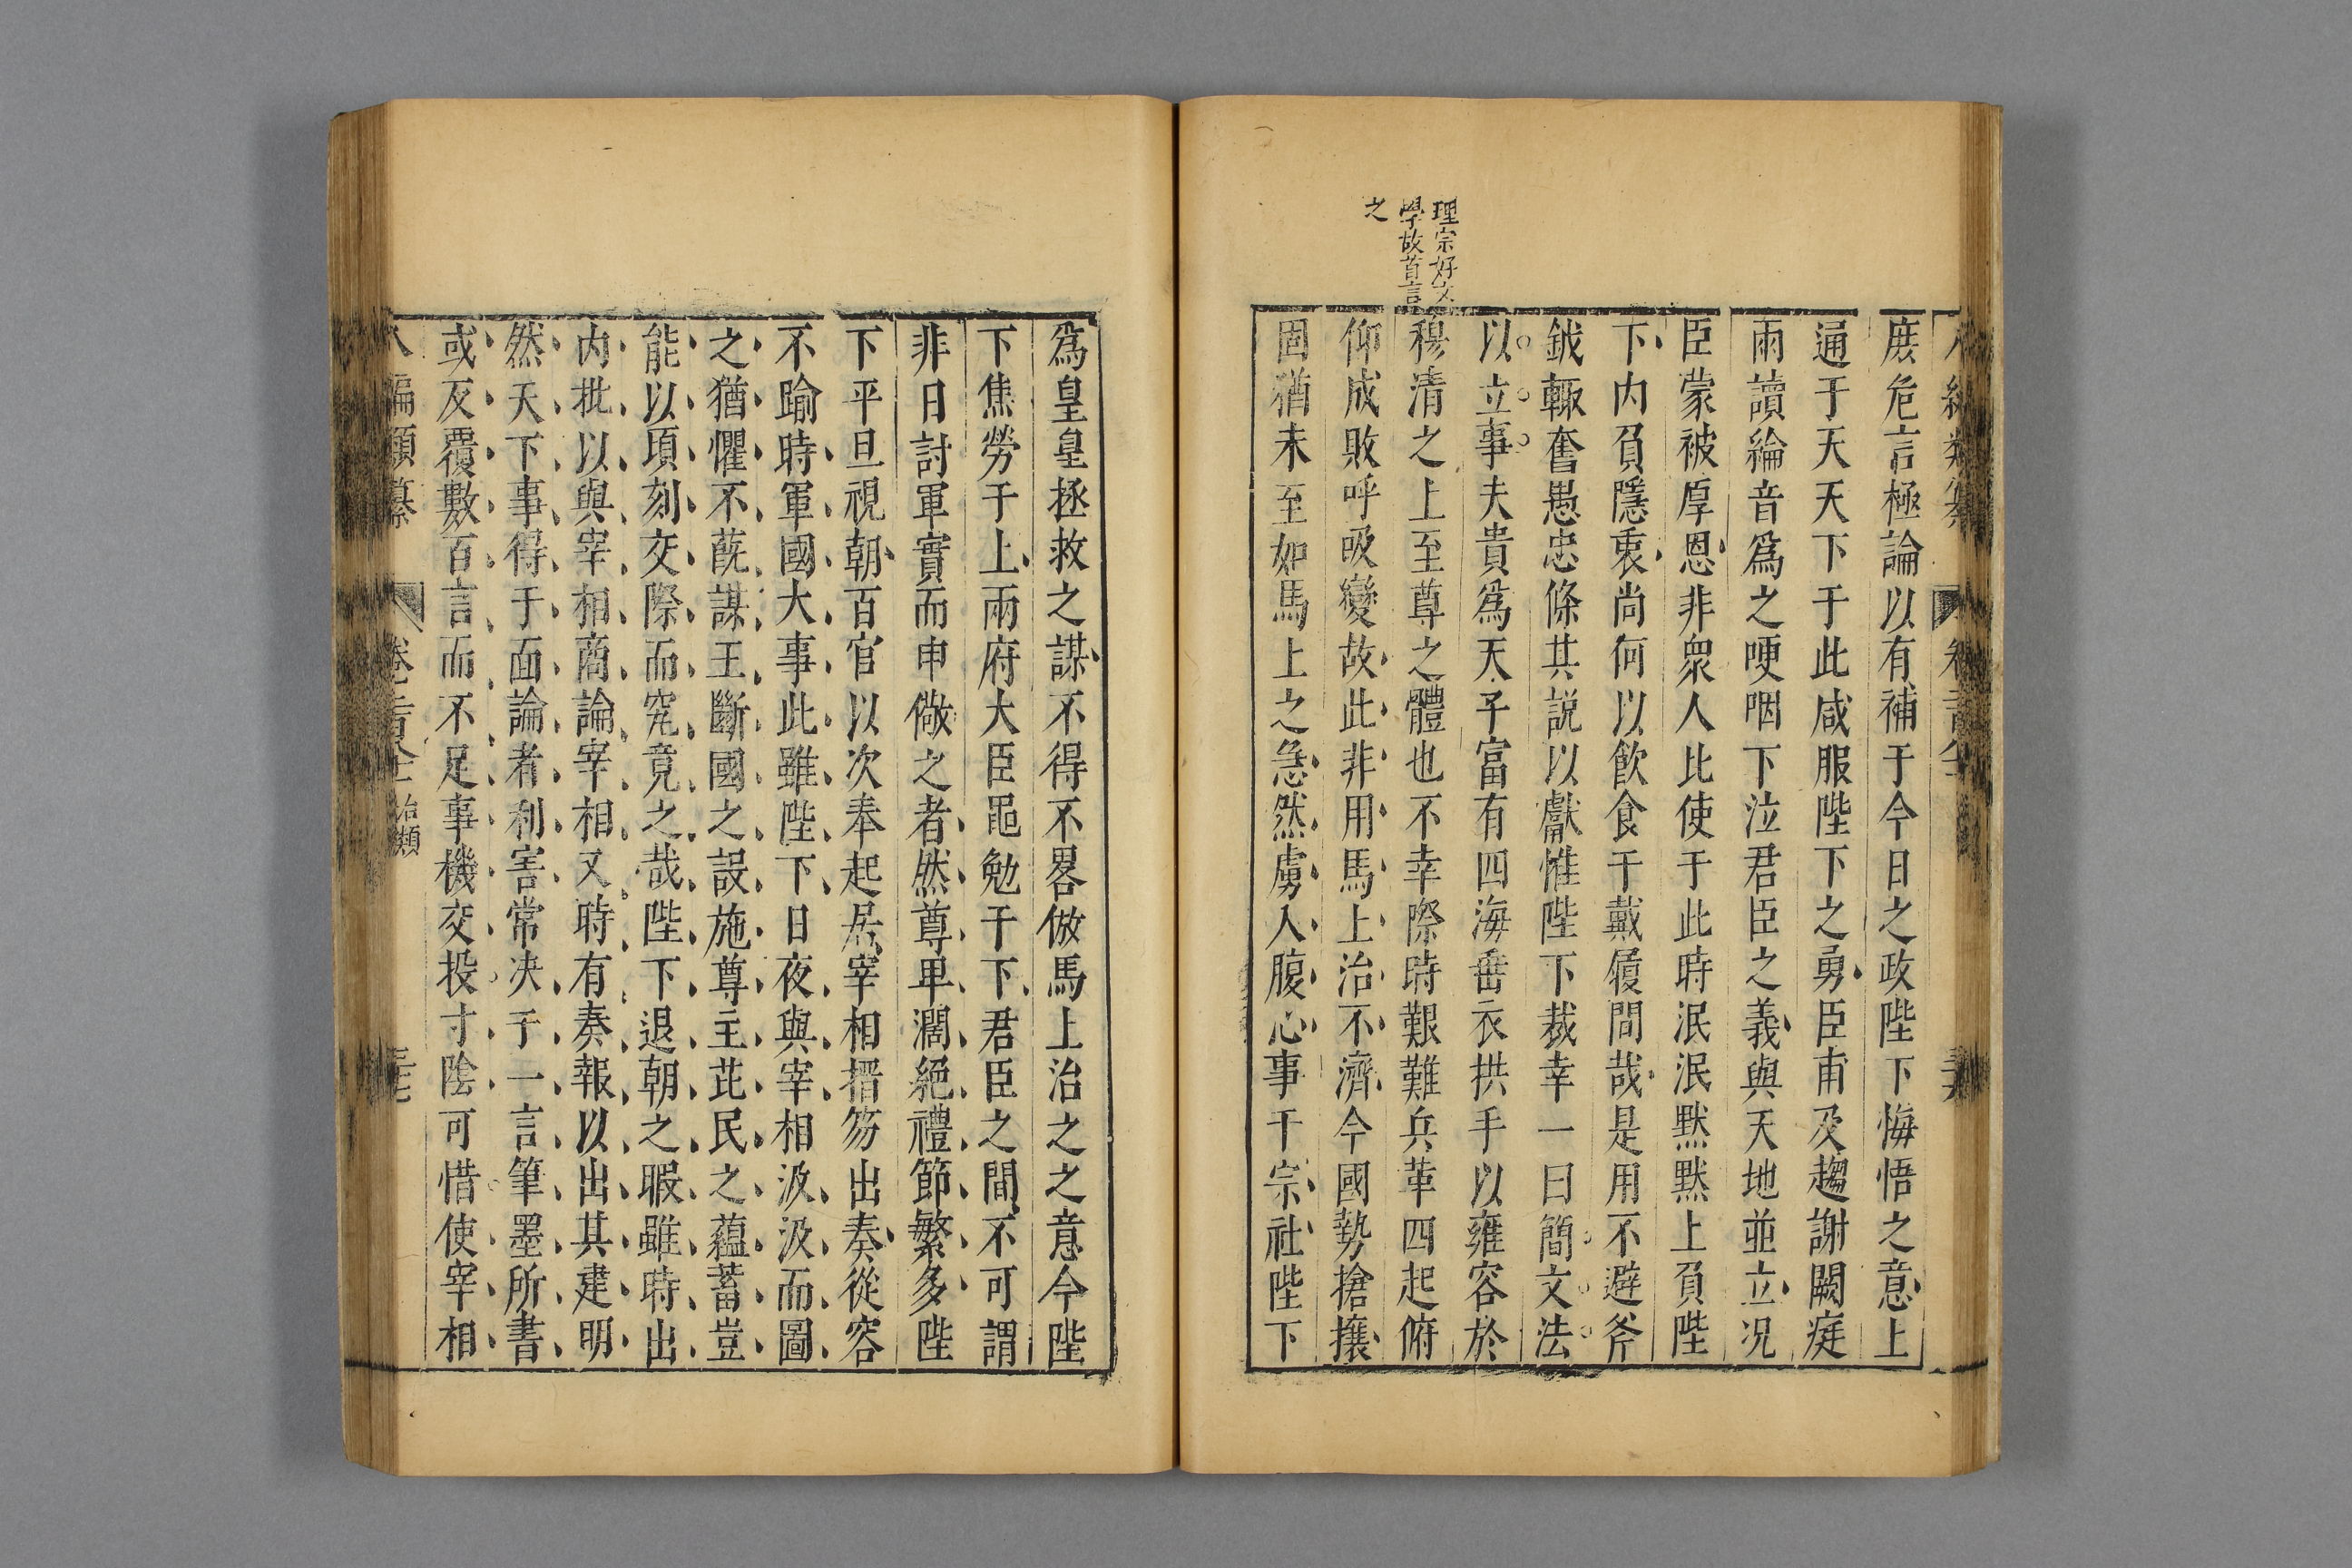 庶危言極論以有補于今日之政陛下悔悟之意上
通于天天下于此咸服陛下之勇臣甫及趨謝闕庭
兩讀綸音爲之哽咽下泣君臣之義與天地並立况
臣蒙被厚恩非衆人比使于此時泯泯黙黙上負陛
下内負隱衷尚何以飮食于戴履間哉是用不避斧
鉞輙奮愚忠條其説以獻惟陛下裁幸一曰簡文法
以立事夫貴爲天子富有四海垂衣拱手以雍容於
穆清之上至尊之體也不幸際時艱難兵革四起俯
仰成敗呼吸變故此非用馬上治不濟今國勢搶攘
固猶未至如馬上之急然虜人腹心事干宗社陛下
理宗好文
學故首言
之
爲皇皇拯救之謀不得不畧倣馬上治之之意今陛
下焦勞于上兩府大臣黽勉于下君臣之間不可謂
非日討軍實而申儆之者然尊卑濶絕禮節繁多陛
下平旦視朝百官以次奉起居宰相搢笏出奏從容
不踰時軍國大事此雖陛下日夜與宰相汲汲而圖
之猶懼不蔇謀王斷國之設施尊主芘民之蘊蓄豈
能以頃刻交際而究竟之哉陛下退朝之暇雖時出
内批以與宰相商論宰相又時有奏報以出其建明
然天下事得于面論者利害常决于一言筆墨所書
或反覆數百言而不足事機交投寸陰可惜使宰相
八編類纂
治類